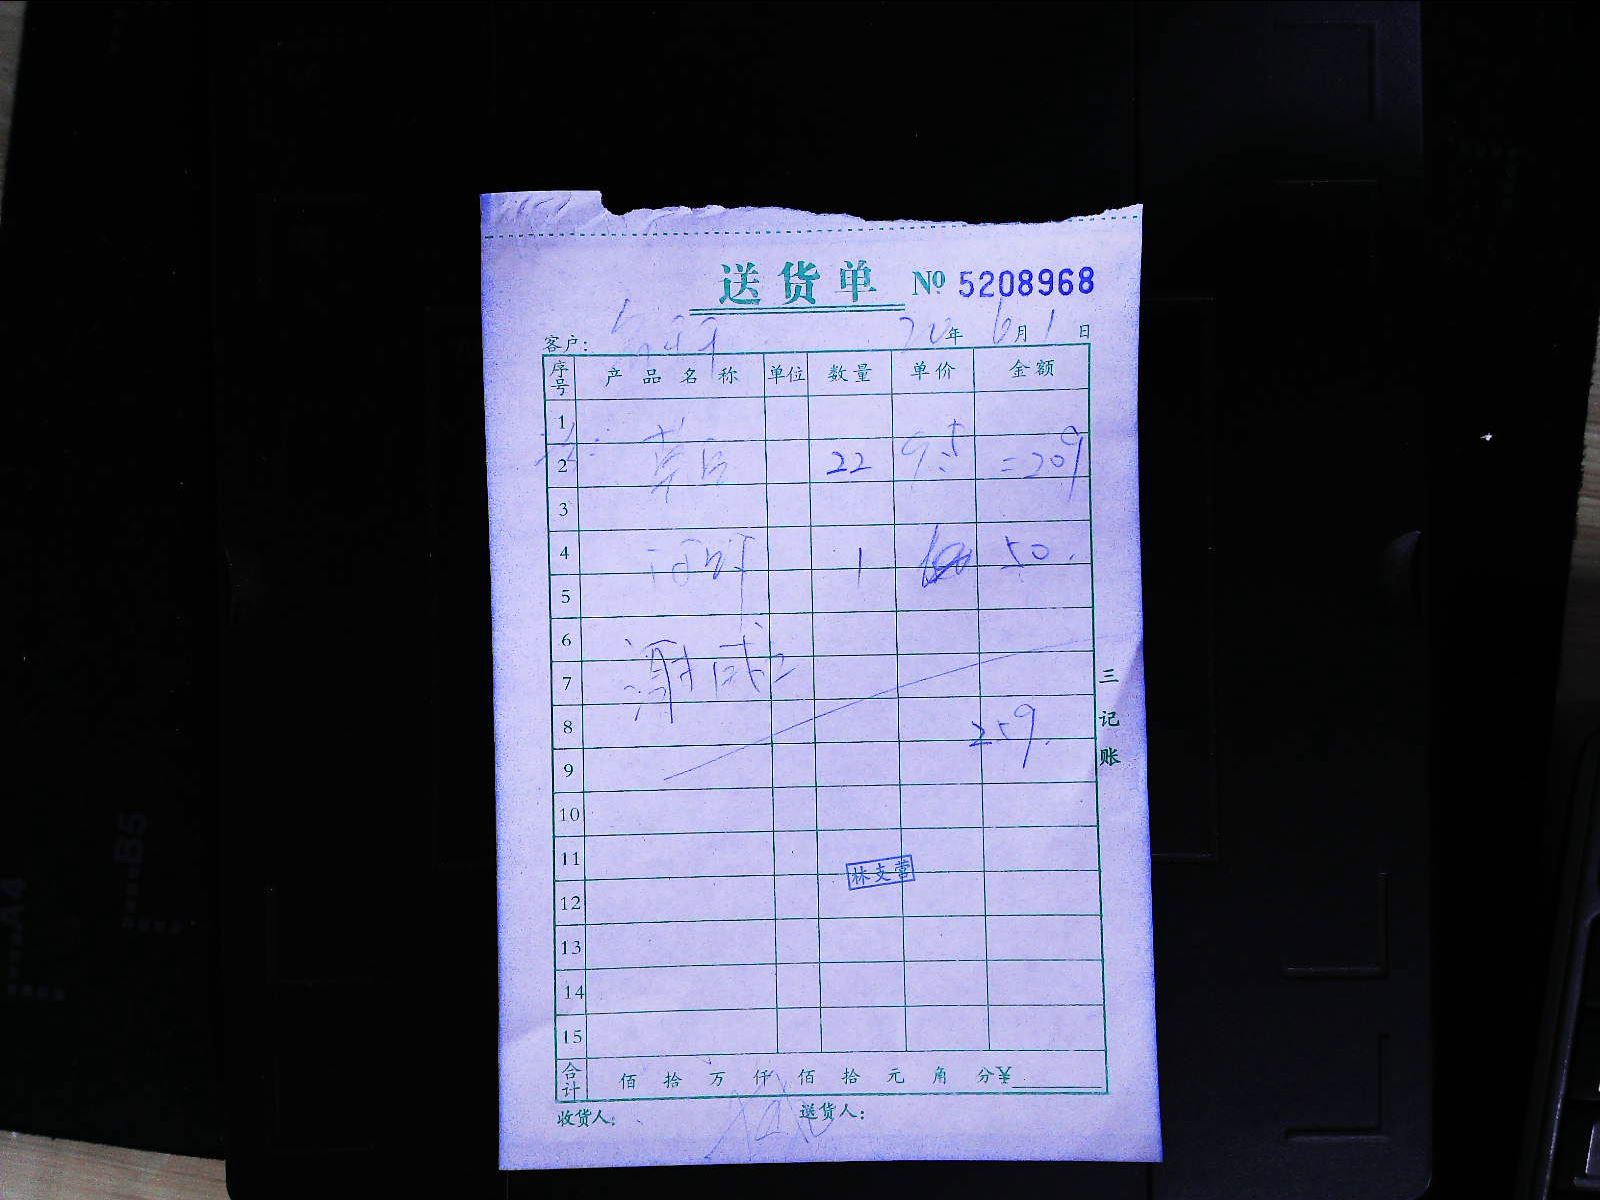 送货单 № 5208968
客户: 20年 6月 1日
序号 产品名称 单位 数量 单价 金额
1
2 22 9.5 =209
3
4 1 50.
5
6
7
8 259.
9
10
11
林支营
12
13
14
15
合计 佰 拾 万 仟 佰 拾 元 角 分¥
收货人: 送货人:
三记账
B5
A4